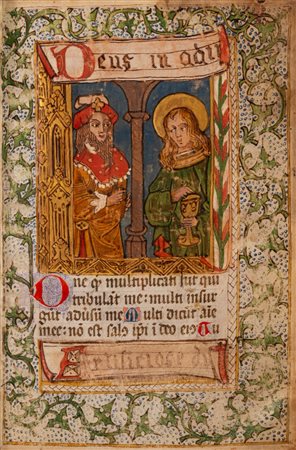 Deus in adiu
Dne qd multiplicati sūt qui
tribulāt me: multi insur
gūt adūsū me Multi dicūt aīe
mee: nō est salꝰ ipi ī deo eiꝰ Tu